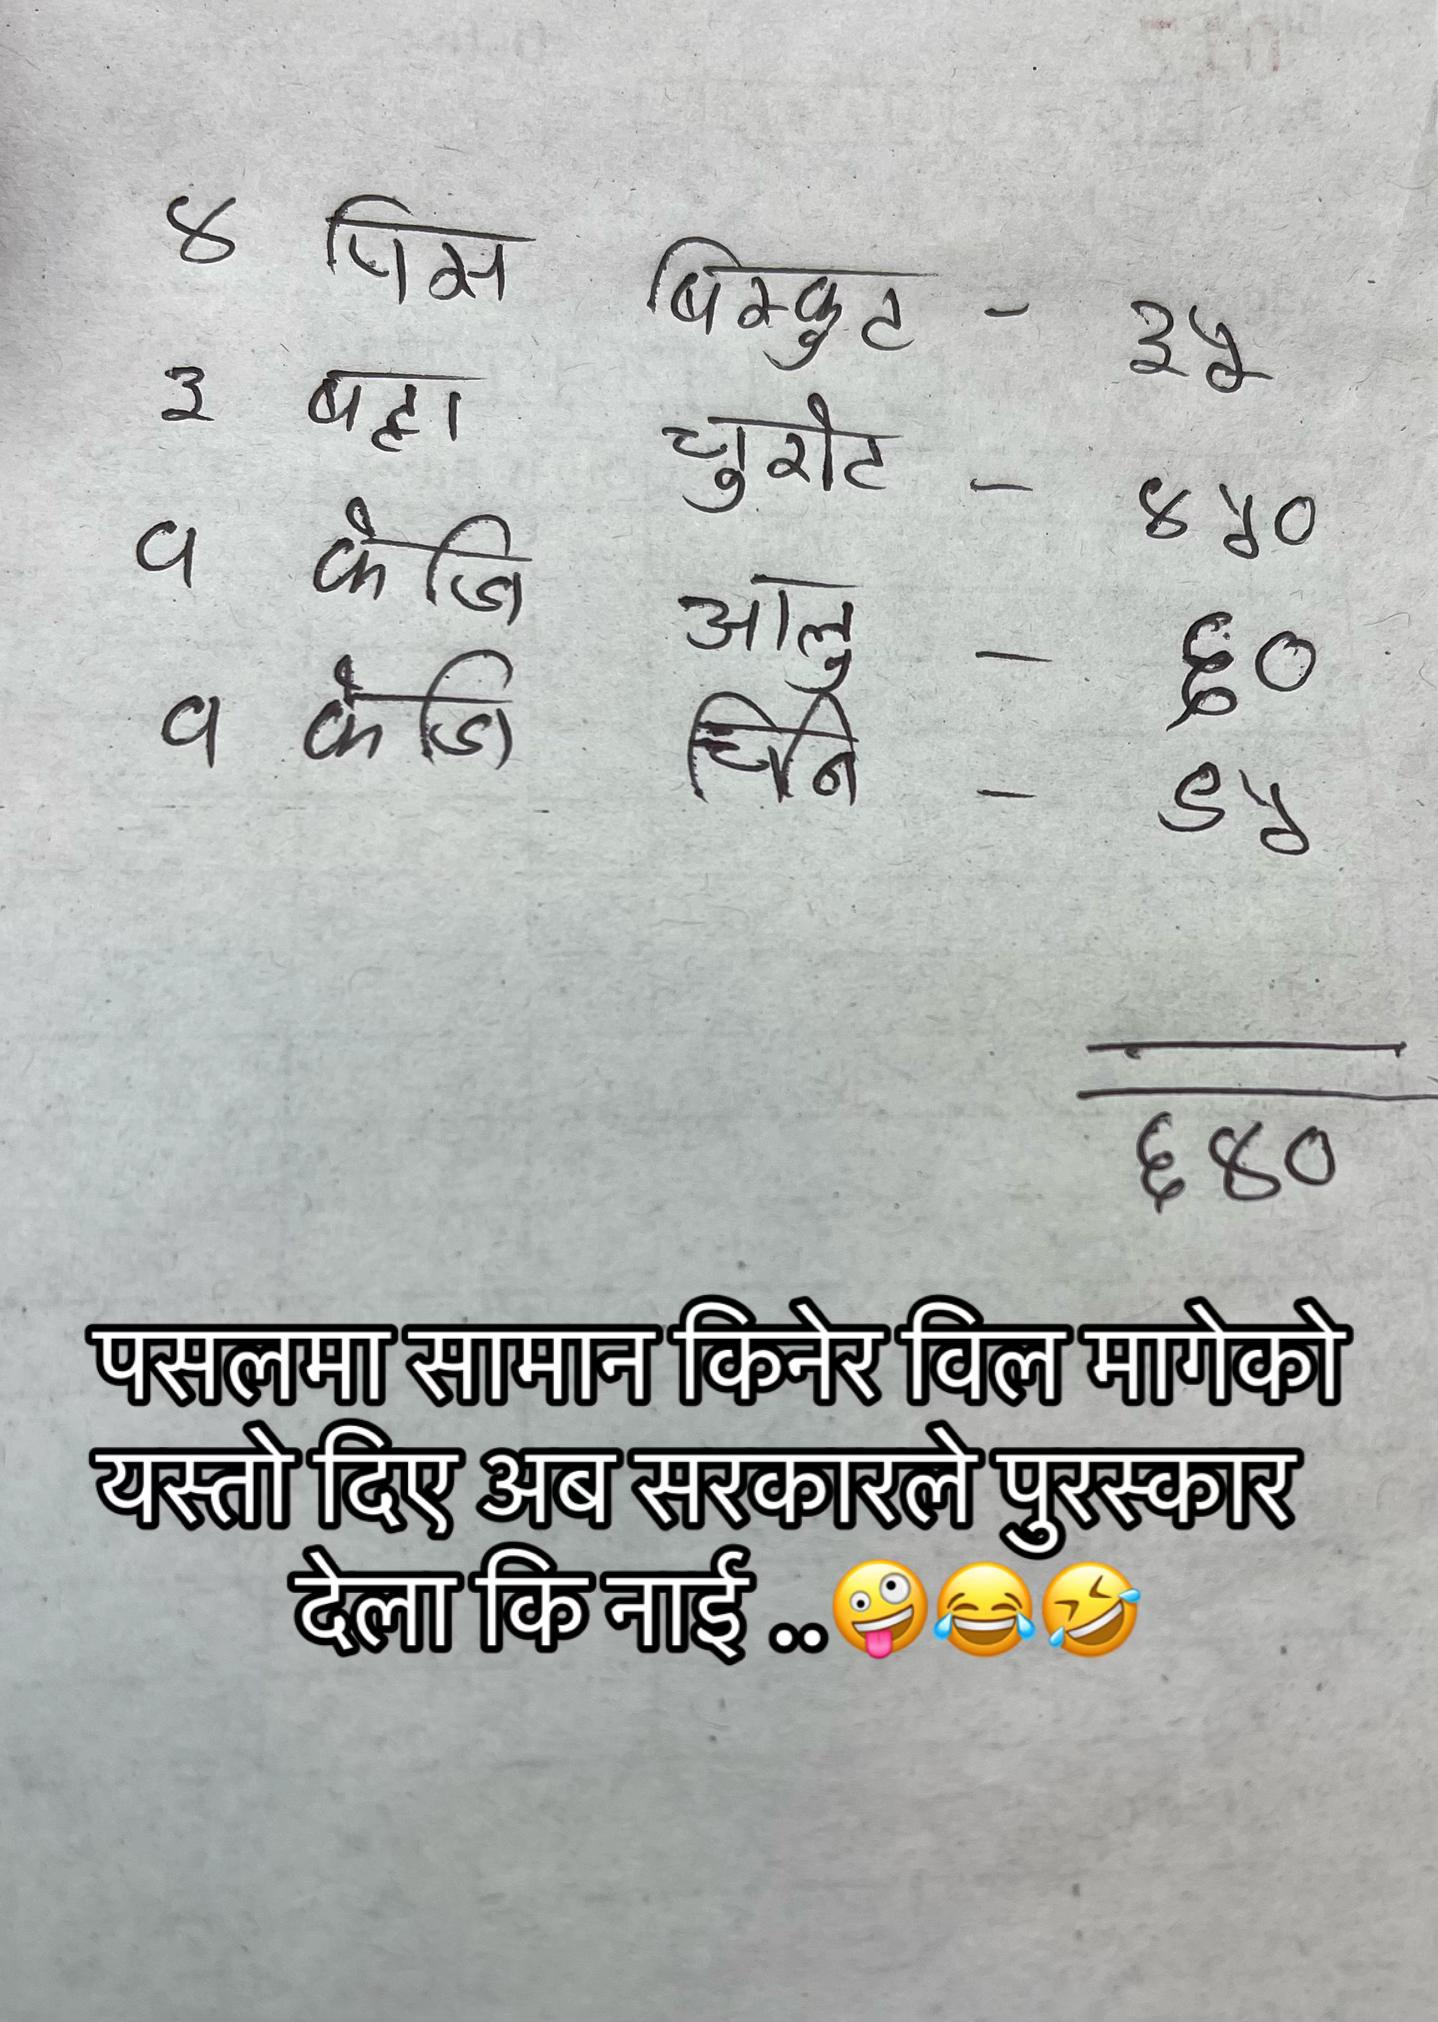 ४ पिस बिस्कुट - ३५
३ बट्टा चुरोट - ४५०
१ केजि आलु - ६०
१ केजि चिनि - ९५
६४०
पसलमा सामान किनेर विल मागेको
यस्तो दिए अब सरकारले पुरस्कार
देला कि नाई ..🤪😂🤣